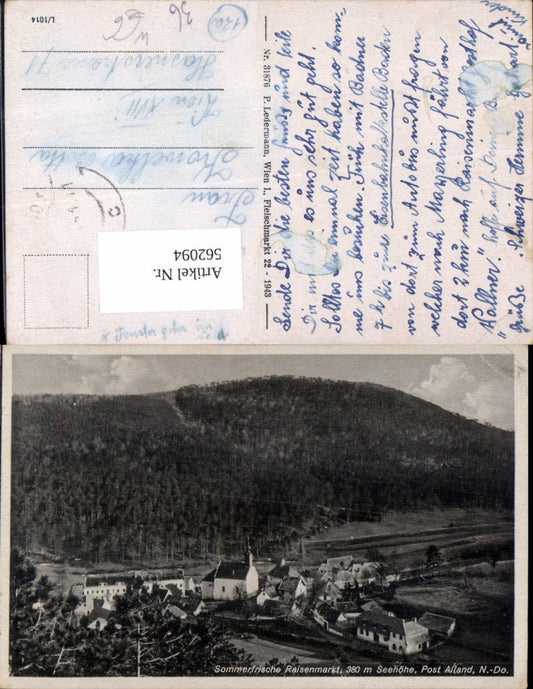 L/1014
12a
36
Frau
Kowelka Bella
Wien XVIII
Hasnerstrasse 71
Artikel Nr.
562094
Nr. 31876 P. Ledermann, Wien I., Fleischmarkt 22 - 1943
Sende Dir die besten Grüße und teile
Dir mit, daß es uns sehr gut geht.
Solltest Du einmal Zeit haben so kom-
me uns besuchen. Früh mit Badner
7 h bis zur Eisenbahnhaltestelle Baden
von dort zum Autobus mußt fragen
welcher nach Mayerling fährt von
dort 2 km nach Raisenmarkt Gasthof
"Wallner". hoffe auf Deinen B.
Grüße
Sommerfrische Raisenmarkt, 380 m Seehöhe, Post Alland, N.-Do.